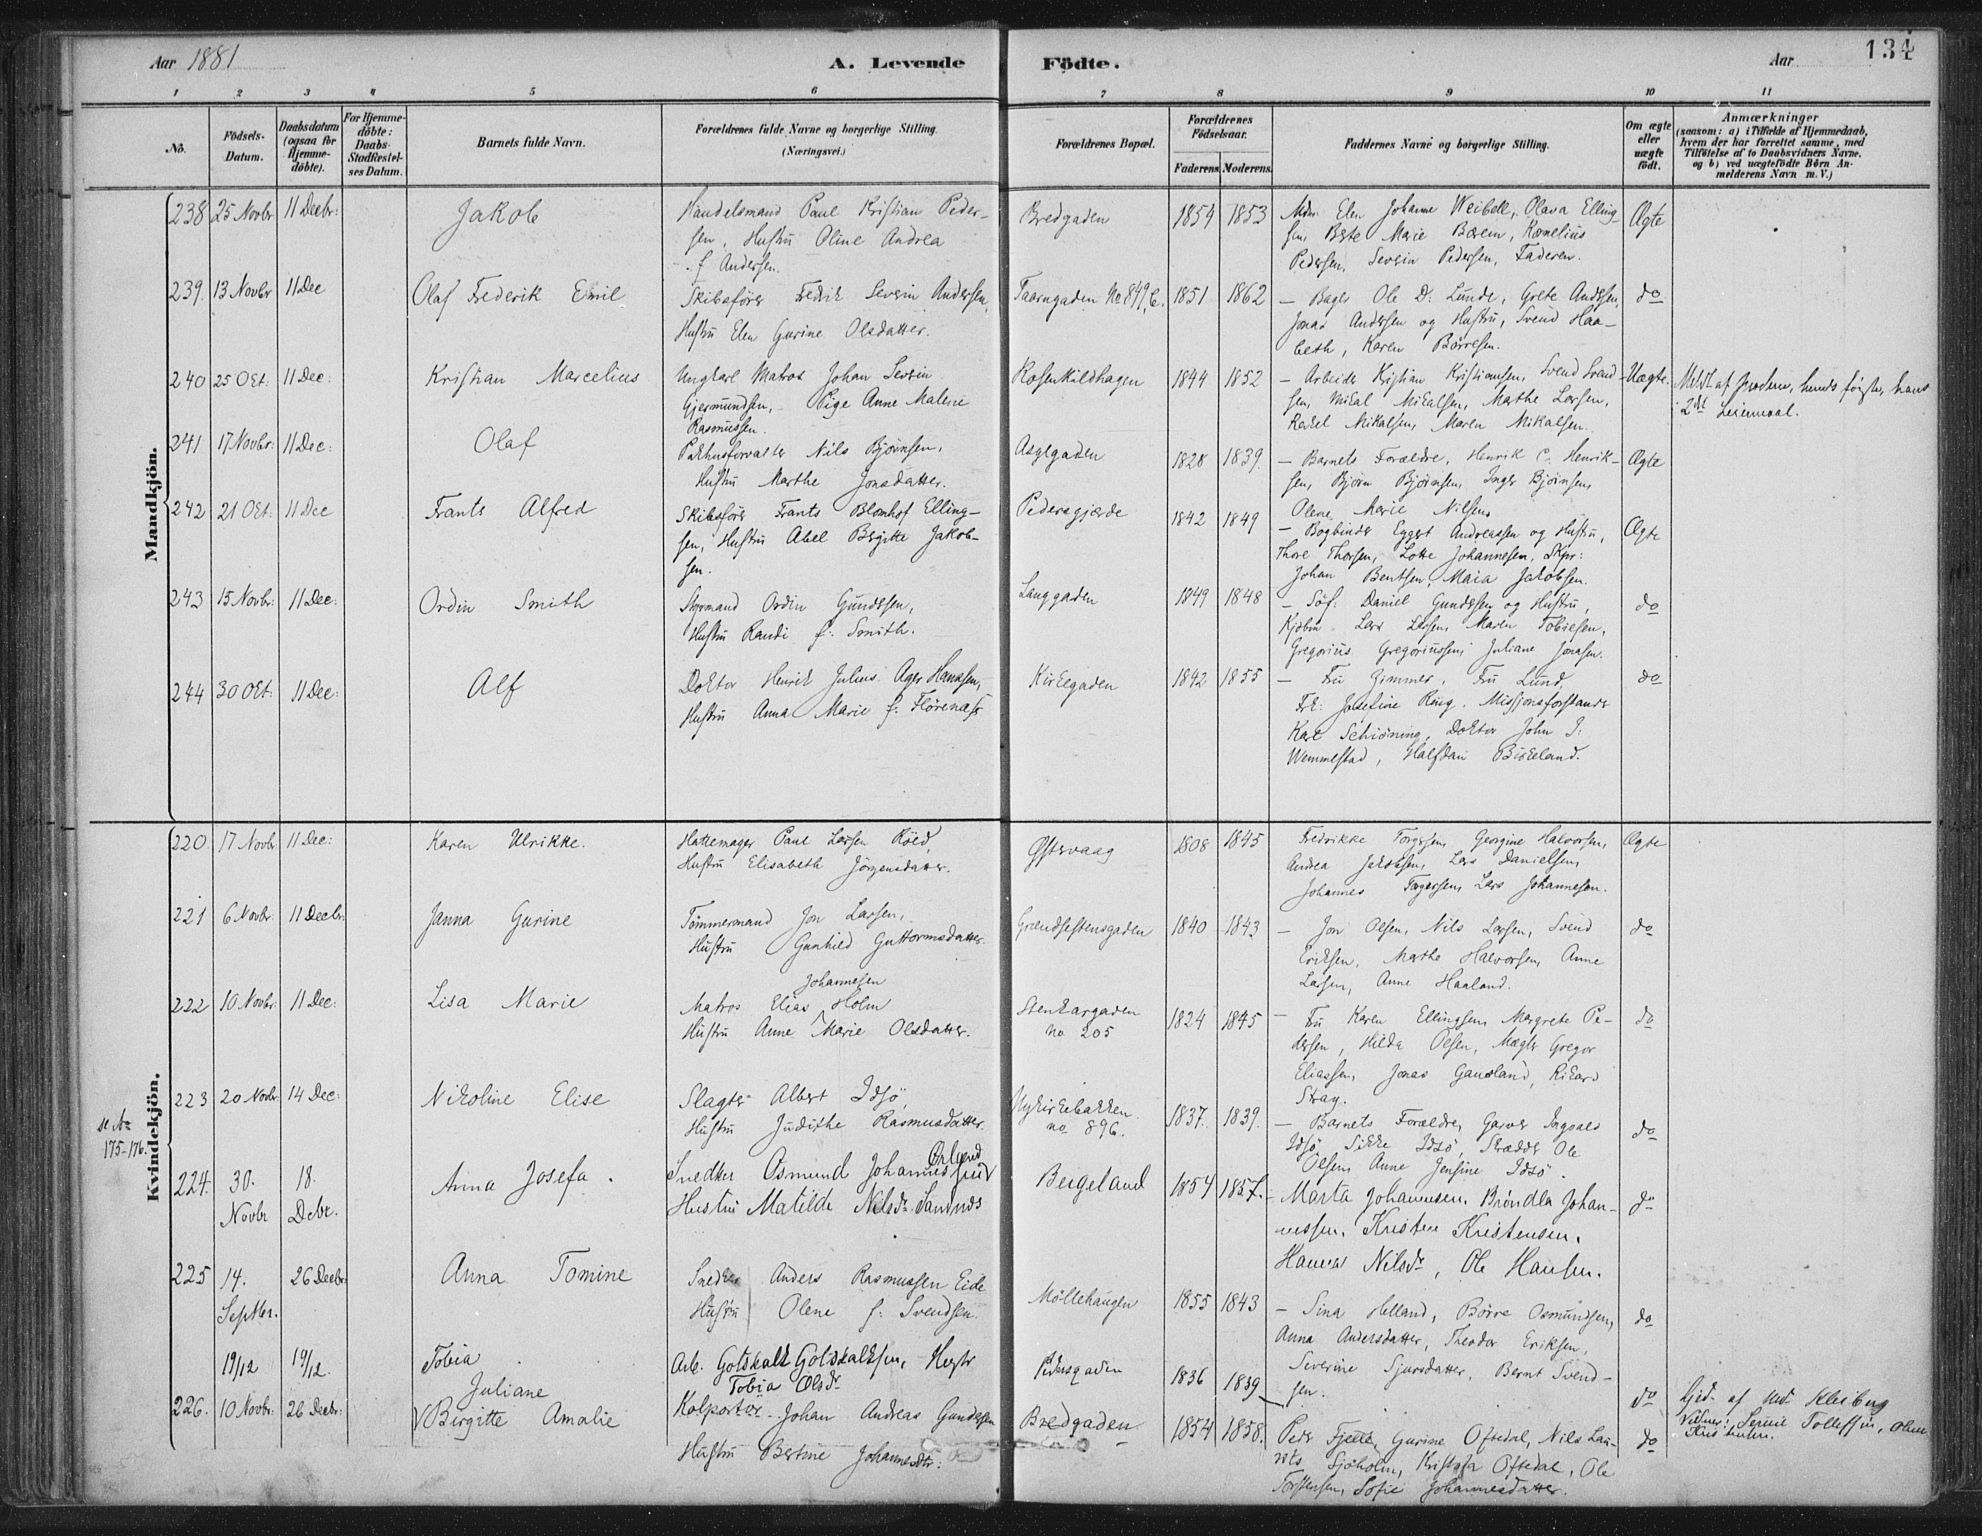 Aar 1881
A. Levende
Födte.
Aar
134
1 2 3 4 5 6 7 8 9 10 11
No.
Födsels-
Datum.
Daabsdatum
(ogsaa for
Hjemme-
döbte).
For Hjemme-
döbte:
Daabs-
Stadfæstel-
ses Datum.
Barnets fulde Navn.
Forældrenes fulde Navne og borgerlige Stilling.
(Næringsvei.)
Forældrenes Bopæl.
Forældrenes
Födselsaar.
Faderens Moderens
Faddernes Navne og borgerlige Stilling.
Om ægte
eller
uægte
födt.
Anmærkninger
(saasom: a) i Tilfælde af Hjemmedaab,
hvem der har forrettet samme, med
Tilföielse af to Daabsvidners Navne,
og b) ved uægtefödte Börn An-
melderens Navn m. V.)
Mandkjön.
238 25 Novbr 11 Decbr: Jakob
Handelsmand Paul Kristian Peder-
sen, Hustru Oline Andrea
f. Andersen.
Bredgaden 1854 1853
Elen Johanne Weibell, Olava Elling-
sen, Berte Marie Bærem, Kornelius
Pedersen, Severin Pedersen, Faderen.
Ægte
239. 13 Novbr 11 Dec Olaf Frederik Emil
Skibsfører Fredrik Severin Andersen,
Hustru Elen Gurine Olsdatter.
Taarngaden No 849, C. 1851 1862
– Bager Ole D. Lunde, Grete Andersen,
Jonas Andersen og Hustru, Svend Haa-
beth, Karen Børresen.
do
240 25 Okt: 11 Dec: Kristian Marcelius
Ungkarl Matros Johan Severin
Gjermundsen, – Pige Anne Malene
Rasmussen.
Rosenkildhagen 1844 1852
– Arbeider Kristian Kristiansen, Svend Svend-
sen, Mikal Mikalsen, Marthe Larsen,
Rakel Mikalsen, Maren Mikalsen.
Uægte.
Meldt af Moderen, hendes første, hans
2det Leiermaal.
241 17 Novbr: 11 Dec: Olaf
Pakhusforvalter Nils Bjørnsen,
Hustru Marthe Jonsdatter.
Asylgaden 1828 1839.
– Barnets Forældre, Henrik C. Henrik-
sen, Bjørn Bjørnsen, Inger Bjørnsen,
Olene Marie Nilsen.
Ægte
242 21 Okt: 11 Dec Frants Alfred
Skibsfører Frants Blomhof Elling-
sen, Hustru Abel Birgitte Jakob-
sen.
Pedersgjærde 1842 1849
– Bogbinder Eggert Andreassen og Hustru,
Thore Thorsen, Lotte Johannesen, Skpr:
Johan Bentsen, Maia Jakobsen.
Ægte
243 15 Novbr: 11 Dec: Ordin Smith
Styrmand Ordin Gundersen,
Hustru Randi f. Smith.
Langgaden 1849 1848
– Søf: Daniel Gundersen og Hustru,
Kjøbm. Lars Larsen, Maren Tobiesen,
Gregorius Gregoriussen, Juliane Jonasen.
do
244 30 Okt: 11 Dec: Alf
Doktor Henrik Julius Ager Hanssen,
Hustru Anna Marie f. Flørenæss
Kirkegaden 1842 1855
– Fru Zimmer, Fru Lund,
Frk: Josefine Ring, Missjonsforstander
Karl Schiøning, Doktor John J:
Wemmestad, Halfdan Birkeland.
do
Kvindekjön.
220 17 Novbr 11 Dec: Karen Ulrikke.
Hattemager Paul Larsen Röed,
Hustru Elisabeth Jörgensdatter.
Østervaag 1808 1845
Fredrikke Torgersen, Georgine Halvorsen,
Andrea Jakobsen, Lars Danielsen,
Johannes Tagersen, Lars Johannesen.
Ægte
221 6 Novbr: 11 Decbr: Janna Gurine
Tømmermand Jon Larsen,
Hustru Gunhild Guttormsdatter.
Grændseftensgaden 1840 1843
– Jon Olsen, Nils Larsen, Svend
Eriksen, Marthe Halvorsen, Anne
Larsen, Anne Haaland.
do
222 10 Novbr: 11 Dec: Lisa Marie
Johannesen
Matros Elias Holm
Hustru Anne Marie Olsdatter.
Stenkargaden
no 205
1824 1845
– Fru Karen Ellingsen, Margrete Pe-
dersen, Hilda Olsen, Mægler Gregor
Eliassen, Jonas Gausland, Rikard
Stray.
do
223 20 Novbr: 14 Dec: Nikoline Elise
Slagter Albert Idsö,
Hustru Judithe Rasmusdatter.
Nykirkebakken
no 896.
1837. 1839.
– Barnets Forældre, Garver Ingvald
Idsö, Sikke Idsö, Skrædder Ole
Olsen, Anne Jensine Idsö.
do
se No
175-176.
224. 30. Novbr 18. Debr. Anna Josefa.
Snedker Osmund Johannessen
Hustru Matilde Nilsdr. Sandnes
Bergeland 1854 1857.
– Marta Johannesen, Brøndla Johan-
nessen, Kristen Kristensen,
Hanna Nilsdr, Ole Hansen.
do
225 14. Septbr. 26 Decbr: Anna Tomine
Snedker Anders Rasmussen Eide
Hustru Olene f. Svendsen.
Møllehaugen 1855 1843
– Sina Helland, Børre Osmundsen,
Anna Andersdatter, Theodor Eriksen,
Severine Sjursdatter, Bernt Svend-
sen.
do
19/12 19/12. Tobia
Juliane
Arb. Gotskalk Gotskalksen, Hustr
Tobia Olsdr
Pedersgaden 1836 1839
do
Hjd. af Md. Kleiberg
Vidner: Serine Tollefsen, Olene
Kristensen.
226. 10 Novbr: 26 Decbr: Birgitte Amalie
Kolportør Johan Andreas Gundersen
Hustru Bertine Johannesdtr.
Bredgaden 1854 1858.
Peder Fjeld, Gurine Oftedal, Nils Lau-
rits Sjøholm, Kristofa Oftedal, Ole
Torstensen, Sofie Johannesdatter.
do